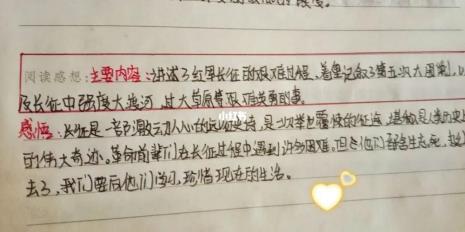 阅读感想:主要内容:讲述了红军长征的艰难过程,着重记叙了第五次大围剿,以
及长征中强渡大渡河,过大草原等艰难故事。
感悟:长征是一部激动人心的是一次举世震惊的征途,堪称是人类历史上
的伟大奇迹。革命前辈们在长征过程中遇到许多困难,但是他们
去了,我们要向他们学习,珍惜现在的生活。
小红书